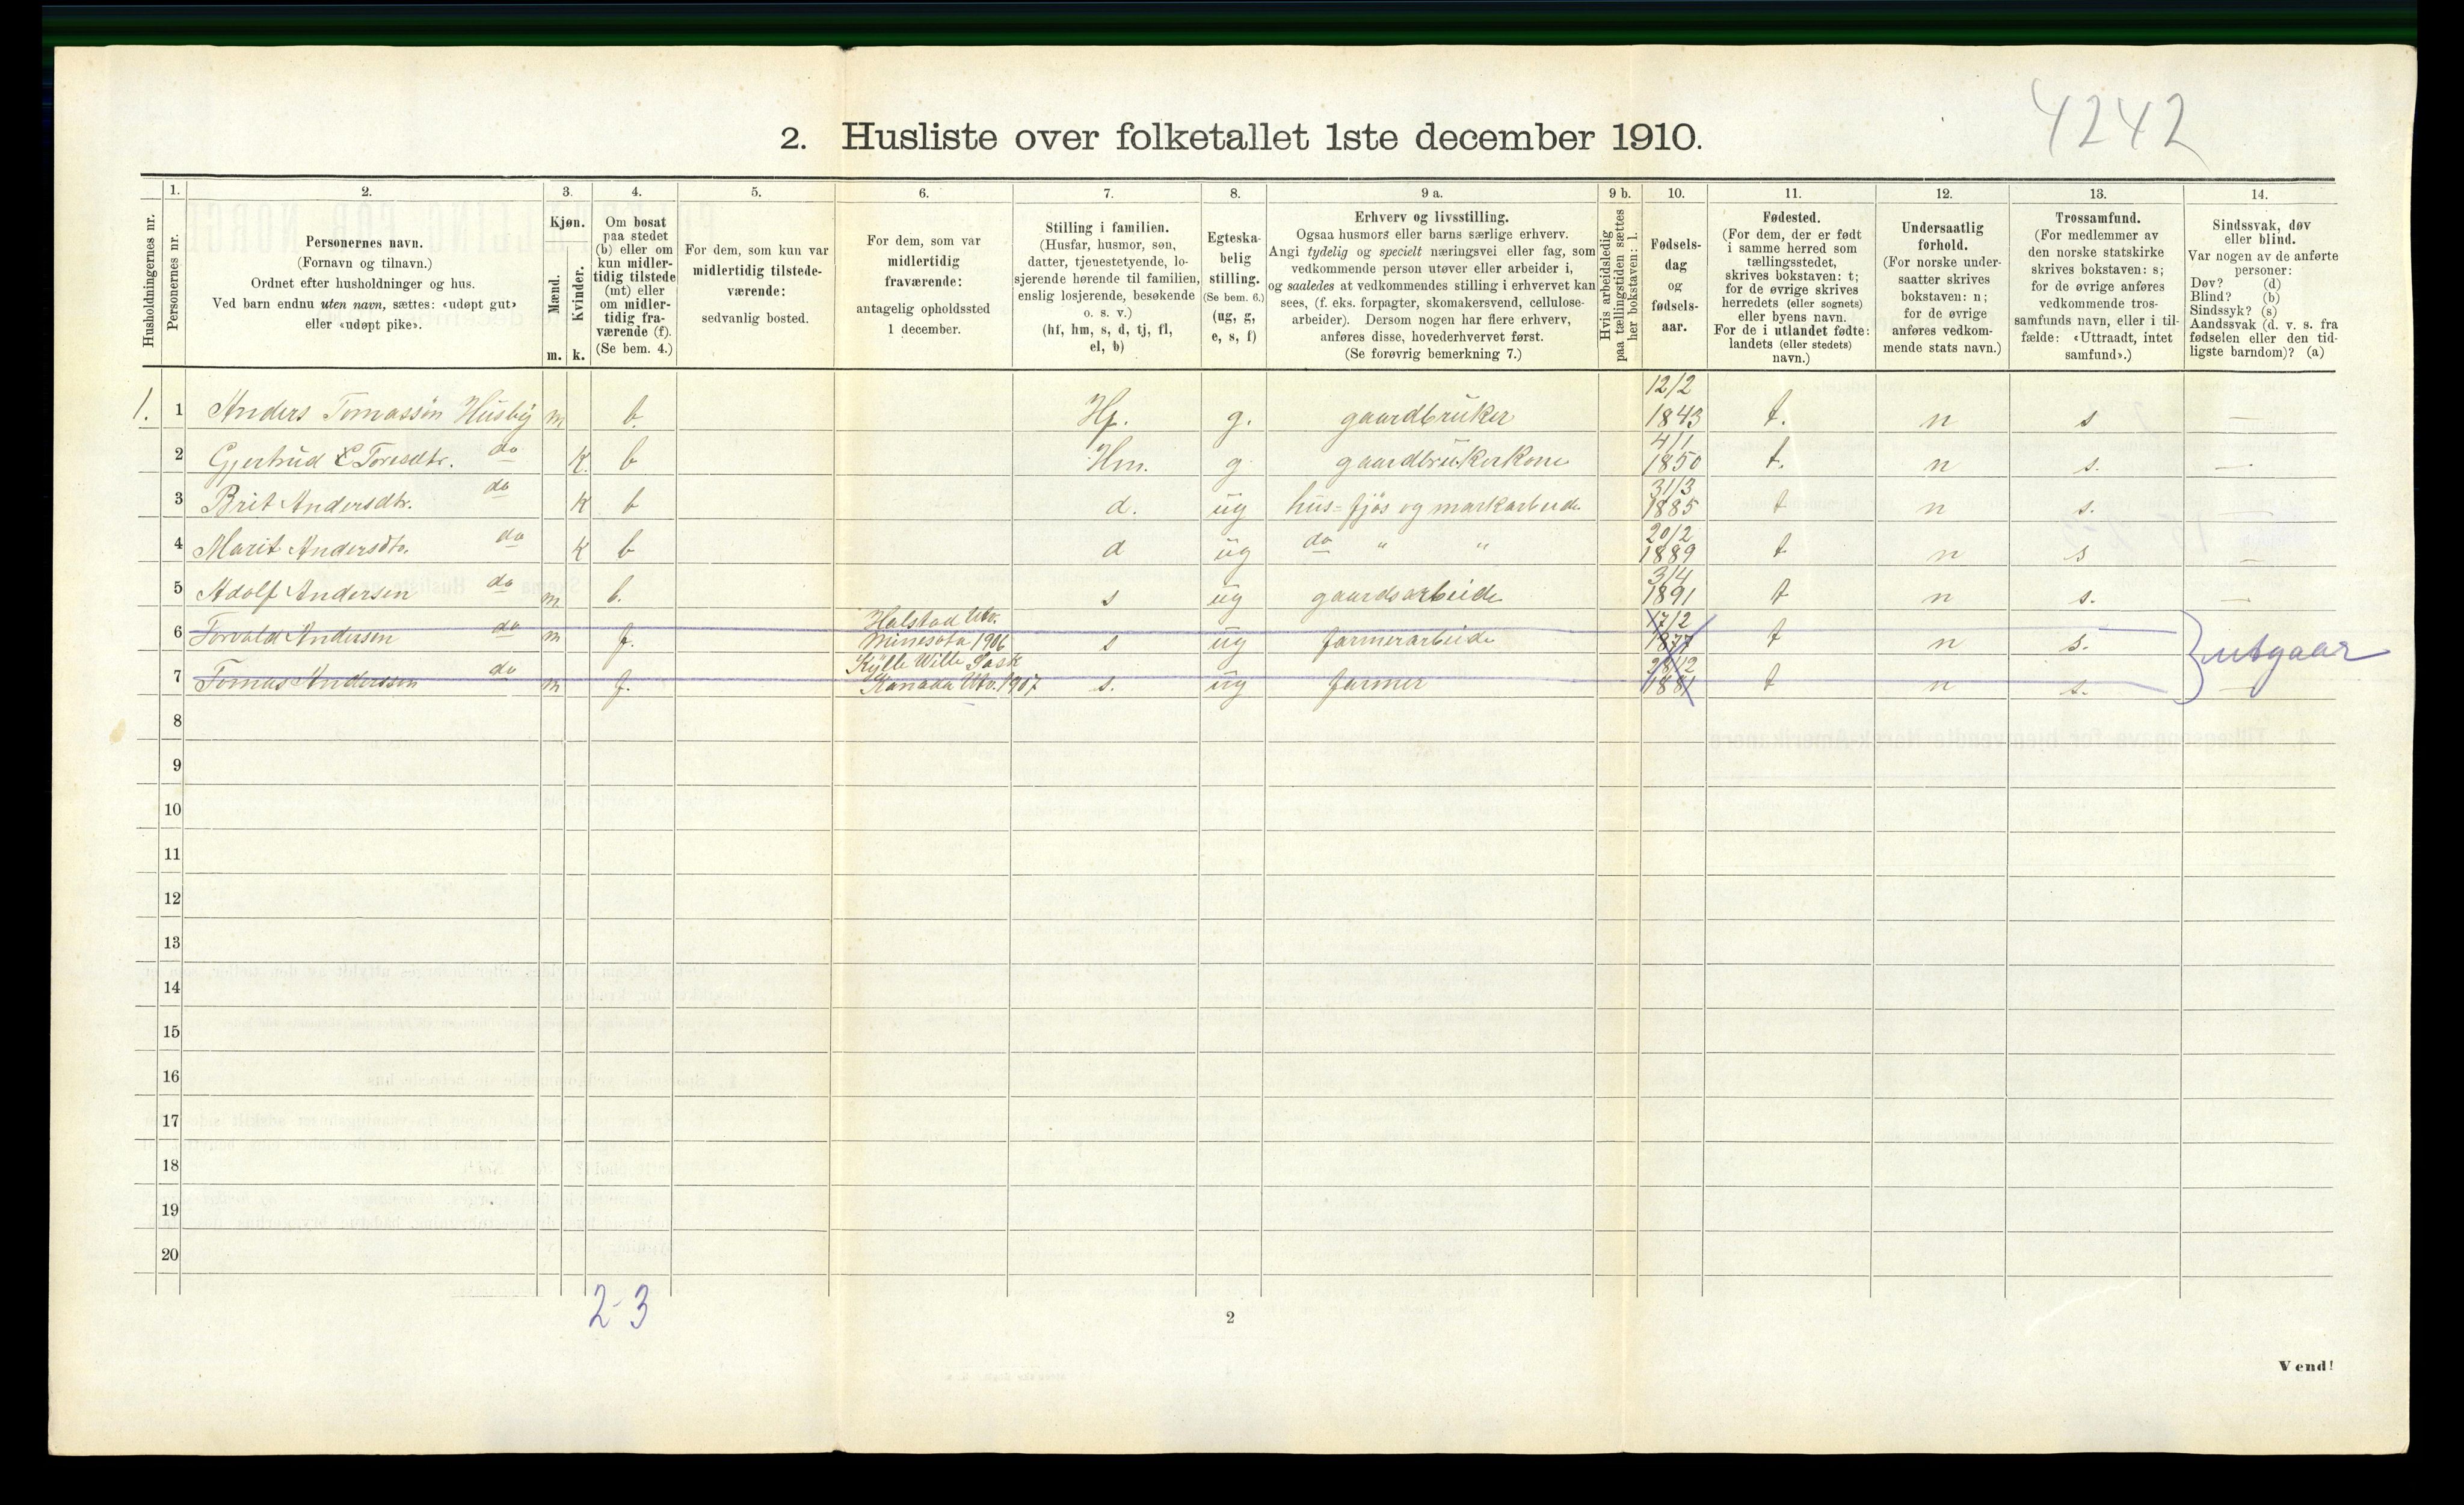 4242
2. Husliste over folketallet 1ste december 1910.
1. 2. 3. 4. 5. 6. 7. 8. 9 a. 9 b. 10. 11. 12. 13. 14.
Husholdningernes nr.
Personernes nr.
Personernes navn.
(Fornavn og tilnavn.)
Ordnet efter husholdninger og hus.
Ved barn endnu uten navn, sættes: «udøpt gut»
eller «udøpt pike».
Kjøn.
Mænd.
Kvinder.
m. k.
Om bosat
paa stedet
(b) eller om
kun midler-
tidig tilstede
(mt) eller
om midler-
tidig fra-
værende (f).
(Se bem. 4.)
For dem, som kun var
midlertidig tilstede-
værende:
sedvanlig bosted.
For dem, som var
midlertidig
fraværende:
antagelig opholdssted
1 december.
Stilling i familien.
(Husfar, husmor, søn,
datter, tjenestetyende, lo-
sjerende hørende til familien,
enslig losjerende, besøkende
o. s. v.)
(hf, hm, s, d, tj, fl,
el, b)
Egteska-
belig
stilling.
(Se bem. 6.)
(ug, g,
e, s, f)
Erhverv og livsstilling.
Ogsaa husmors eller barns særlige erhverv.
Angi tydelig og specielt næringsvei eller fag, som
vedkommende person utøver eller arbeider i,
og saaledes at vedkommendes stilling i erhvervet kan
sees, (f. eks. forpagter, skomakersvend, cellulose-
arbeider). Dersom nogen har flere erhverv,
anføres disse, hovederhvervet først.
(Se forøvrig bemerkning 7.)
Hvis arbeidsledig
paa tællingstiden sættes
her bokstaven: l.
Fødsels-
dag
og
fødsels-
aar.
Fødested.
(For dem, der er født
i samme herred som
tællingsstedet,
skrives bokstaven: t;
for de øvrige skrives
herredets (eller sognets)
eller byens navn.
For de i utlandet fødte:
landets (eller stedets)
navn.)
Undersaatlig
forhold.
(For norske under-
saatter skrives
bokstaven: n;
for de øvrige
anføres vedkom-
mende stats navn.)
Trossamfund.
(For medlemmer av
den norske statskirke
skrives bokstaven: s;
for de øvrige anføres
vedkommende tros-
samfunds navn, eller i til-
fælde: «Uttraadt, intet
samfund».)
Sindssvak, døv
eller blind.
Var nogen av de anførte
personer:
Døv? (d)
Blind? (b)
Sindssyk? (s)
Aandssvak (d. v. s. fra
fødselen eller den tid-
ligste barndom)? (a)
1. 1 Anders Tomassøn Husby m b. Hf. g. gaardbruker 12/2 1843 t. n s —
2 Gjertrud Toresdtr. do k. b Hm. g gaardbrukerkone 4/1 1850 t. n s. —
3 Brit Andersdtr. do k b d. ug hus- fjøs og markarbeide 31/3 1885 t n s. —
4 Marit Andersdtr. do k b d ug do " " 20/2 1889 t n s —
5 Adolf Andersen do m b. s ug gaardsarbeide 3/4 1891 t n s. —
6 Torvald Andersen do m f. Halstad Utv. Minnesota 1906 s ug farmerarbeide 17/2 1877 t n s.
7 Tomas Anderssøn do m f. Kylle Wille Sask Kanada Utv. 1907 s. ug farmer 28/12 1881 t n s. —
utgaar
8
9
10
11
12
13
14
15
16
17
18
19
20
2-3
2
Vend!